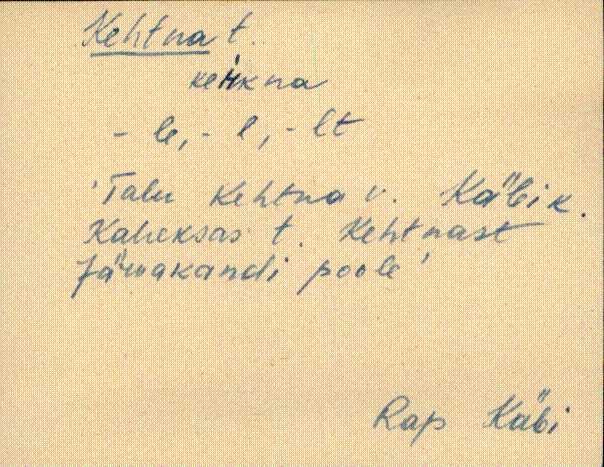 Kehtna t.
kehkna
- le, - l, - lt
'Talu Kehtna v. Käbi k.
Kaheksas t. Kehtnast
Järvakandi poole'
Rap Käbi